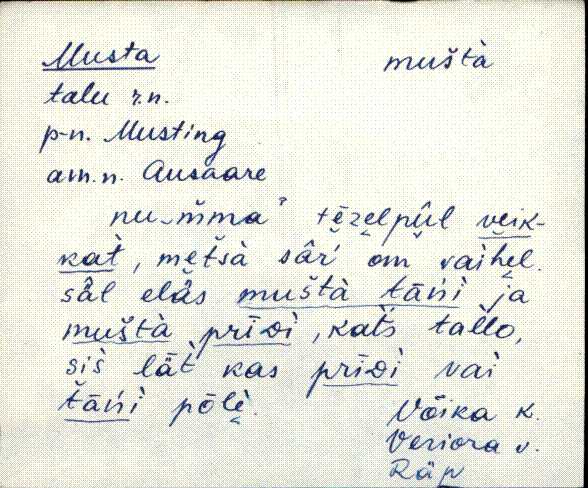 Musta muštà
talu r.n.
p-n. Musting
am.n. Ausaare
nu m̆ma tēzelpûl veik-
kàt, metšà sâŕ om vaihel.
sâl eläs muštà tāńi ja
muštà pŕīdi, kat́s tallo,
siš lät kas pŕīdi vai
tāńi pōlè.
Võika k.
Veriora v.
Räp